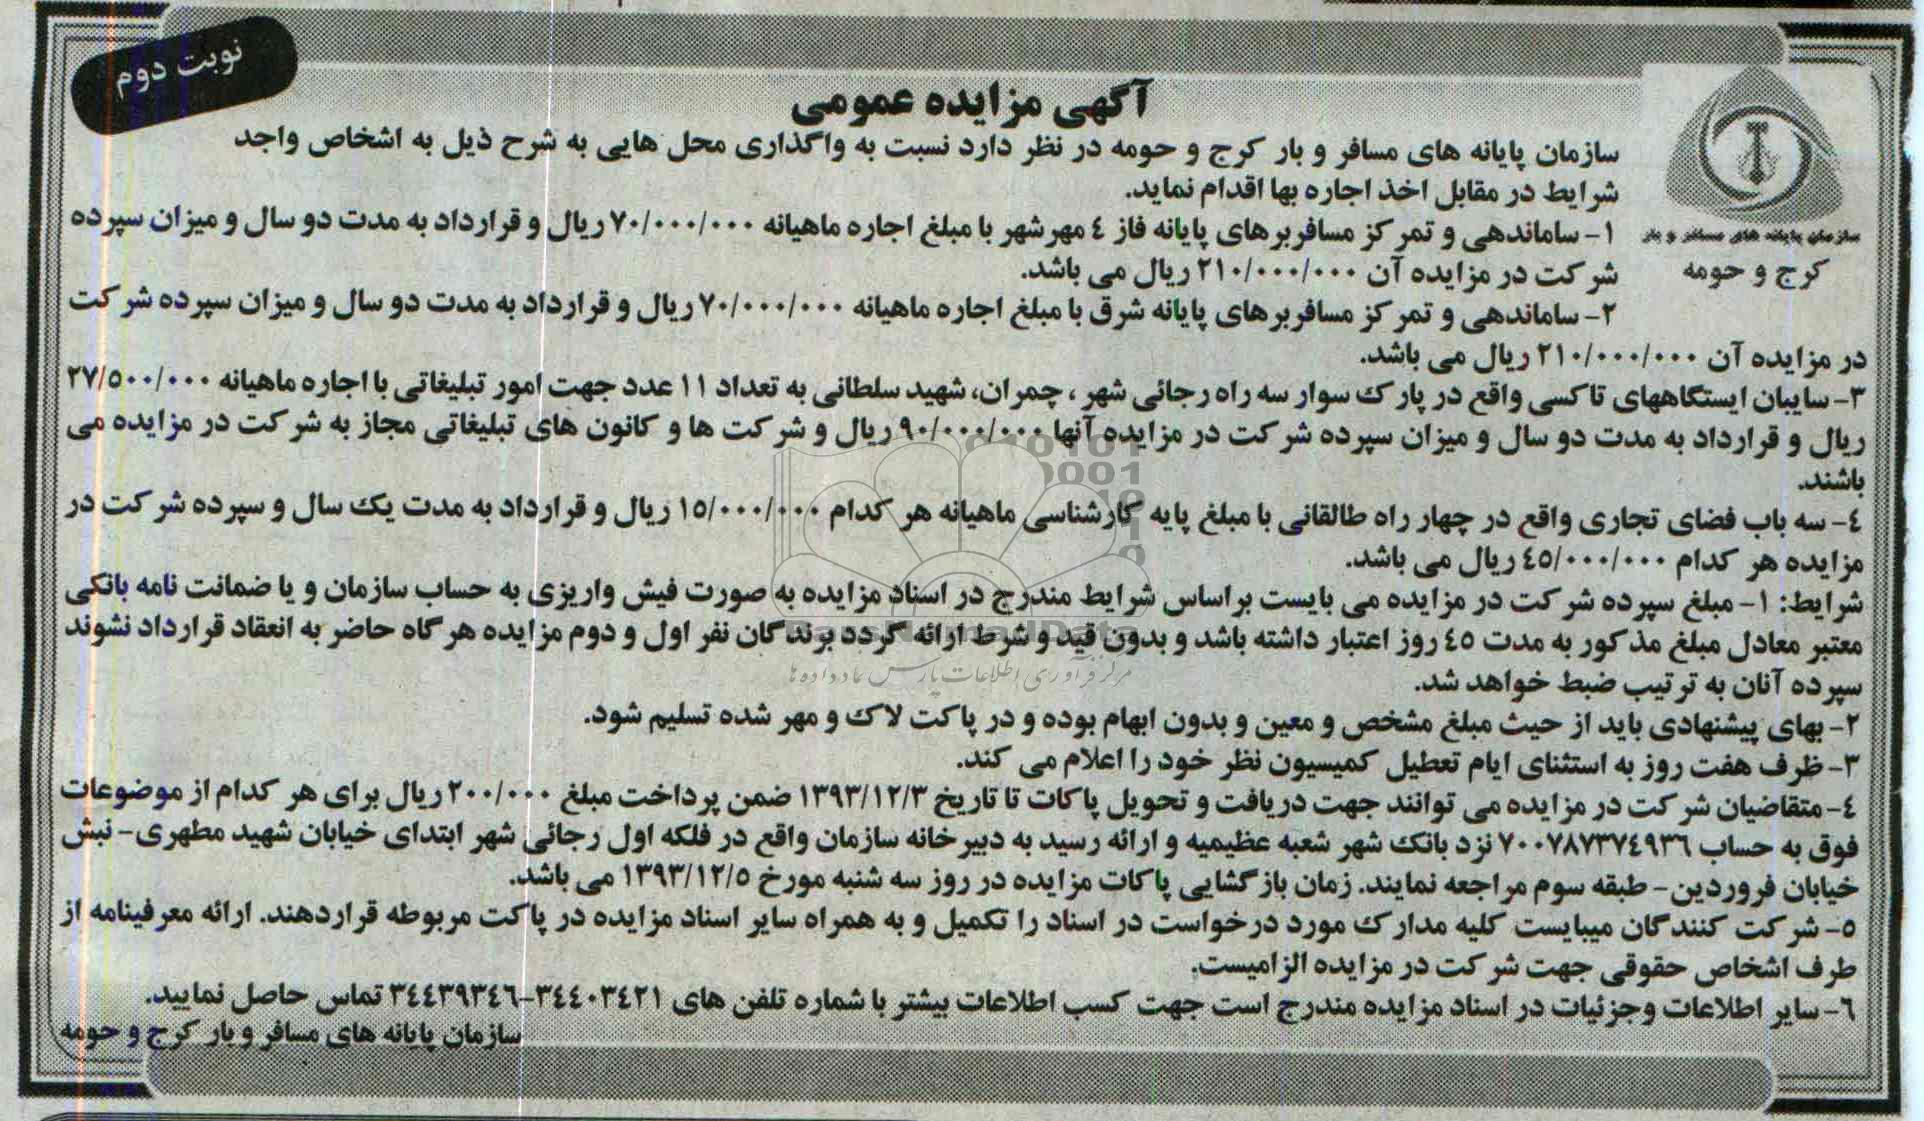 نوبت دوم
آگهی مزایده عمومی
سازمان پایانه های مسافر و بار
کرج و حومه
سازمان پایانه های مسافر و بار کرج و حومه در نظر دارد نسبت به واگذاری محل هایی به شرح ذیل به اشخاص واجد
شرایط در مقابل اخذ اجاره بها اقدام نماید.
۱- ساماندهی و تمرکز مسافربرهای پایانه فاز ٤ مهرشهر با مبلغ اجاره ماهیانه ۷۰/۰۰۰/۰۰۰ ریال و قرارداد به مدت دو سال و میزان سپرده
شرکت در مزایده آن ۲۱۰/۰۰۰/۰۰۰ ریال می باشد.
۲- ساماندهی و تمرکز مسافربرهای پایانه شرق با مبلغ اجاره ماهیانه ۷۰/۰۰۰/۰۰۰ ریال و قرارداد به مدت دو سال و میزان سپرده شرکت
در مزایده آن ۲۱۰/۰۰۰/۰۰۰ ریال می باشد.
۳- سایبان ایستگاههای تاکسی واقع در پارک سوار سه راه رجائی شهر ، چمران، شهید سلطانی به تعداد ۱۱ عدد جهت امور تبلیغاتی با اجاره ماهیانه ۲۷/۵۰۰/۰۰۰
ریال و قرارداد به مدت دو سال و میزان سپرده شرکت در مزایده آنها ۹۰/۰۰۰/۰۰۰ ریال و شرکت ها و کانون های تبلیغاتی مجاز به شرکت در مزایده می
باشند.
٤- سه باب فضای تجاری واقع در چهار راه طالقانی با مبلغ پایه کارشناسی ماهیانه هر کدام ۱۵/۰۰۰/۰۰۰ ریال و قرارداد به مدت یک سال و سپرده شرکت در
مزایده هر کدام ٤٥/۰۰۰/۰۰۰ ریال می باشد.
شرایط: ۱- مبلغ سپرده شرکت در مزایده می بایست براساس شرایط مندرج در اسناد مزایده به صورت فیش واریزی به حساب سازمان و یا ضمانت نامه بانکی
معتبر معادل مبلغ مذکور به مدت ٤٥ روز اعتبار داشته باشد و بدون قید و شرط ارائه گردد برندگان نفر اول و دوم مزایده هرگاه حاضر به انعقاد قرارداد نشوند
سپرده آنان به ترتیب ضبط خواهد شد.
۲- بهای پیشنهادی باید از حیث مبلغ مشخص و معین و بدون ابهام بوده و در پاکت لاک و مهر شده تسلیم شود.
۳- ظرف هفت روز به استثنای ایام تعطیل کمیسیون نظر خود را اعلام می کند.
٤- متقاضیان شرکت در مزایده می توانند جهت دریافت و تحویل پاکات تا تاریخ ۱۳۹۳/۱۲/۳ ضمن پرداخت مبلغ ۲۰۰/۰۰۰ ریال برای هر کدام از موضوعات
فوق به حساب ۷۰۰۷۸۷۳۷٤۹۳٦ نزد بانک شهر شعبه عظیمیه و ارائه رسید به دبیرخانه سازمان واقع در فلکه اول رجائی شهر ابتدای خیابان شهید مطهری- نبش
خیابان فروردین- طبقه سوم مراجعه نمایند. زمان بازگشایی پاکات مزایده در روز سه شنبه مورخ ۱۳۹۳/۱۲/۵ می باشد.
۵- شرکت کنندگان میبایست کلیه مدارک مورد درخواست در اسناد را تکمیل و به همراه سایر اسناد مزایده در پاکت مربوطه قراردهند. ارائه معرفینامه از
طرف اشخاص حقوقی جهت شرکت در مزایده الزامیست.
٦- سایر اطلاعات وجزئیات در اسناد مزایده مندرج است جهت کسب اطلاعات بیشتر با شماره تلفن های ۳٤٤۰۳٤۲۱-۳٤٤۳۹۳٤٦ تماس حاصل نمایید.
سازمان پایانه های مسافر و بار کرج و حومه
ParsNamadData
مرکز فرآوری اطلاعات پارس نماد داده ها